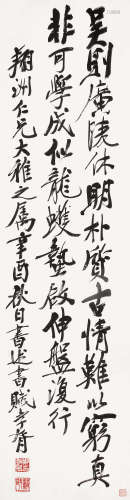 吴则广陵休明朴质古情难以穷真
非可学成似龙蠖蛰启伸盘复行
翔洲仁兄大雅之属辛酉秋日书述书赋孝胥